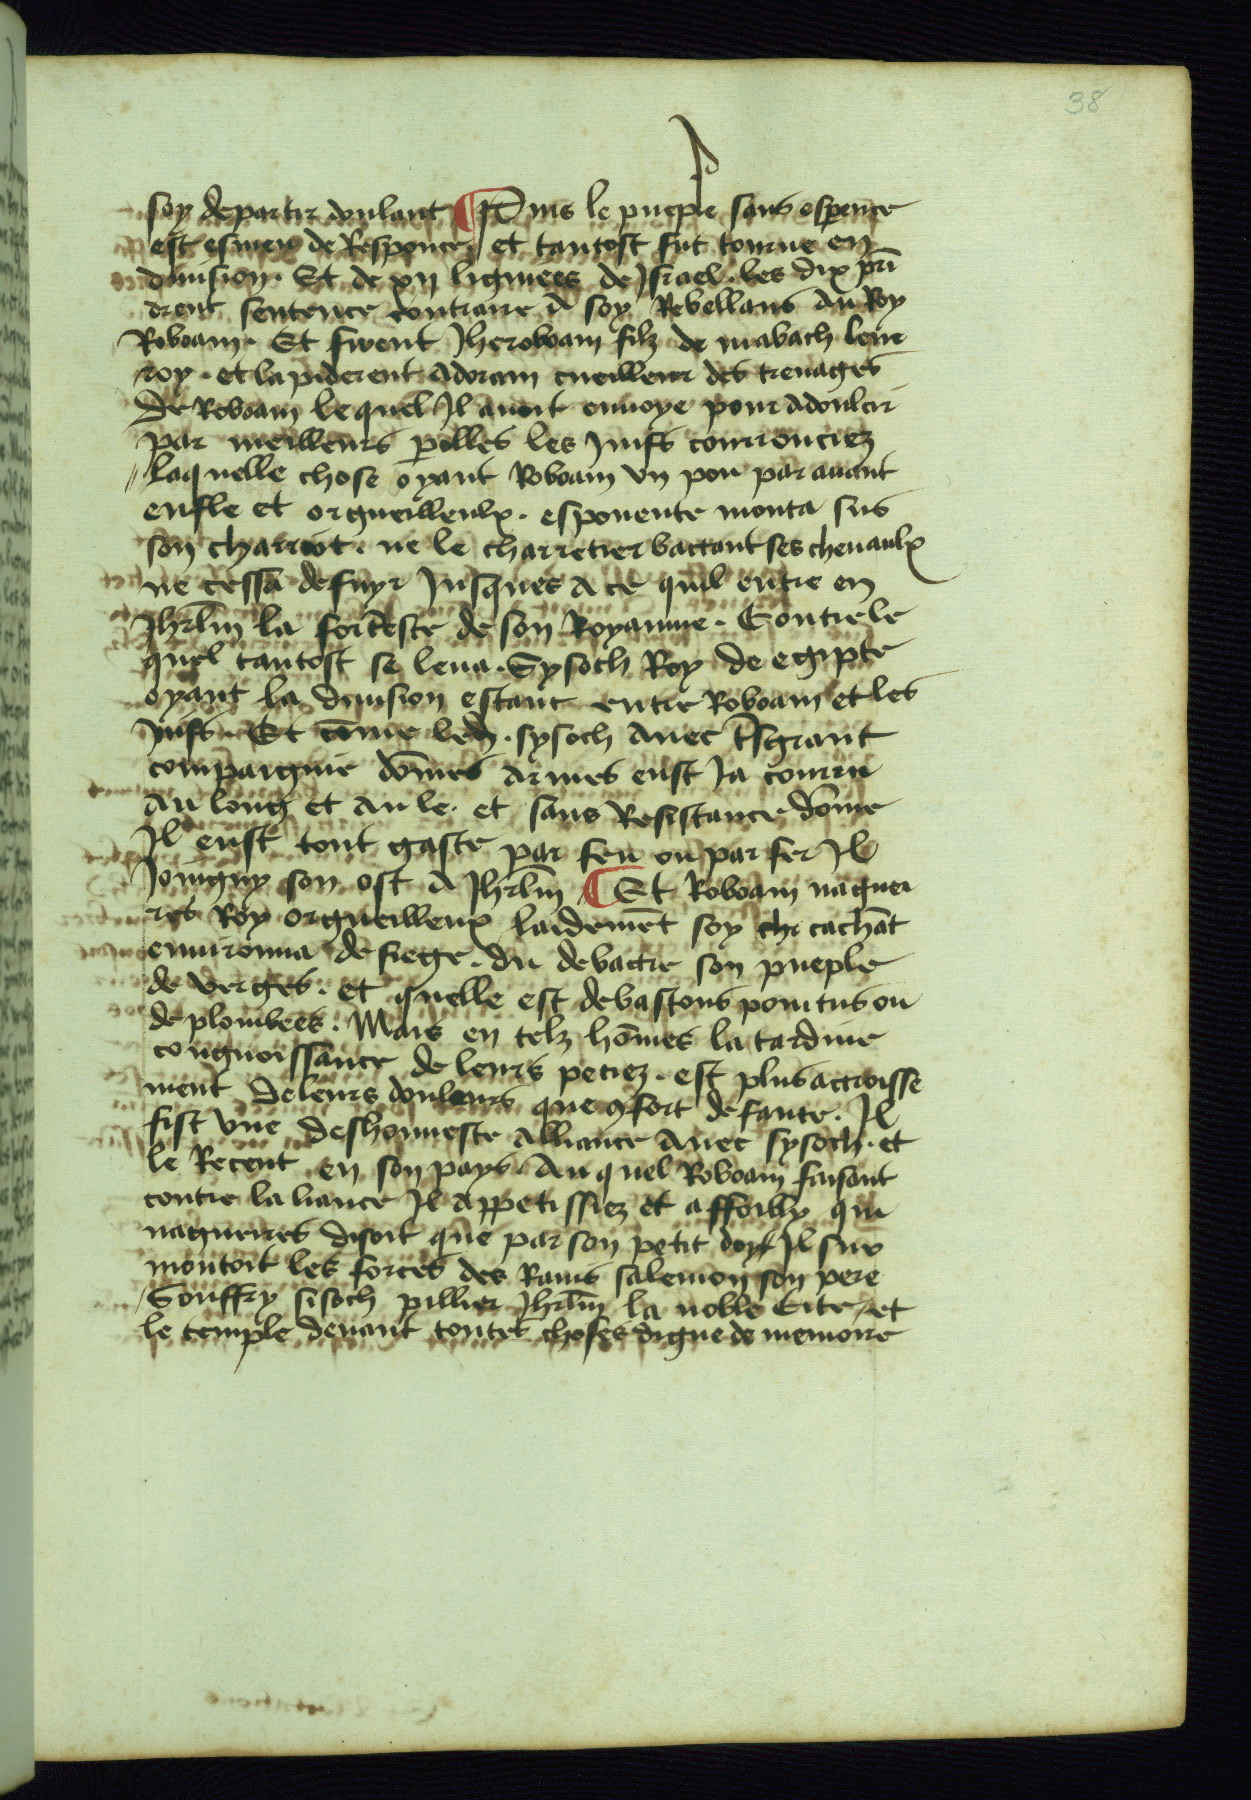 38
soy departir dulant ¶ Puis le pueple sans esperence
est esmeu de Response. et tantost fut tourne en
diuision. Et de xii lignees de Israel. les dix prī
drent sentence contraire a soy Rebellans du Roy
Roboam. Et firent Jheroboam filz de nabach leur
roy. et lapiderent adoram cueilleur des treuages
De Roboam lequel Il auoit enuoye pour adoulcir
par meilleurs polles les Juifs courrouciez
laquelle chose oyant Roboam vn pou parauant
enfle et orgueilleulx. espouente monta sus
son charriot. ne le charretier battant ses cheuaulx
ne cessa defuyr Jusques a ce quil entre en
Jhrlm la forteste de son Royaume. Contre le
quel tantost se leua. Sysoch Roy de egipte
oyant la diuision estant entre Roboam et les
Juifs. Et cōme led. sysoch auec tsgrant
compaignie dōmes armes eust Ja couru
au long et au le. et sans Resistance dōme
Il eust tout gaste par feu ou par fer Il
Joinguy son ost a Jhrlm ¶ Et Roboam naguei
res Roy orgueilleux laidemēt soy cachāt
enuironna de siege. du debatre son pueple
de verges. et quelle est debastons pointus ou
de plombees. Mais en telz hōmes la tardiue
congnoissance de leurs petiez. est plus accroisse
ment deleurs douleurs que 9fort de faute. Il
fist vne deshonneste alliance auec sysoch. et
le Recent en son pays. Auquel Roboam faisant
contre laliance Il appetissiez et affoibly qui
nagueires disoit que par son petit doyt Il sur
montoit les forces des Rains salemon son pere
Souffry sisoch pillier Jhrlm la noble Cite, et
le temple deuant toutes choses digne de memoire